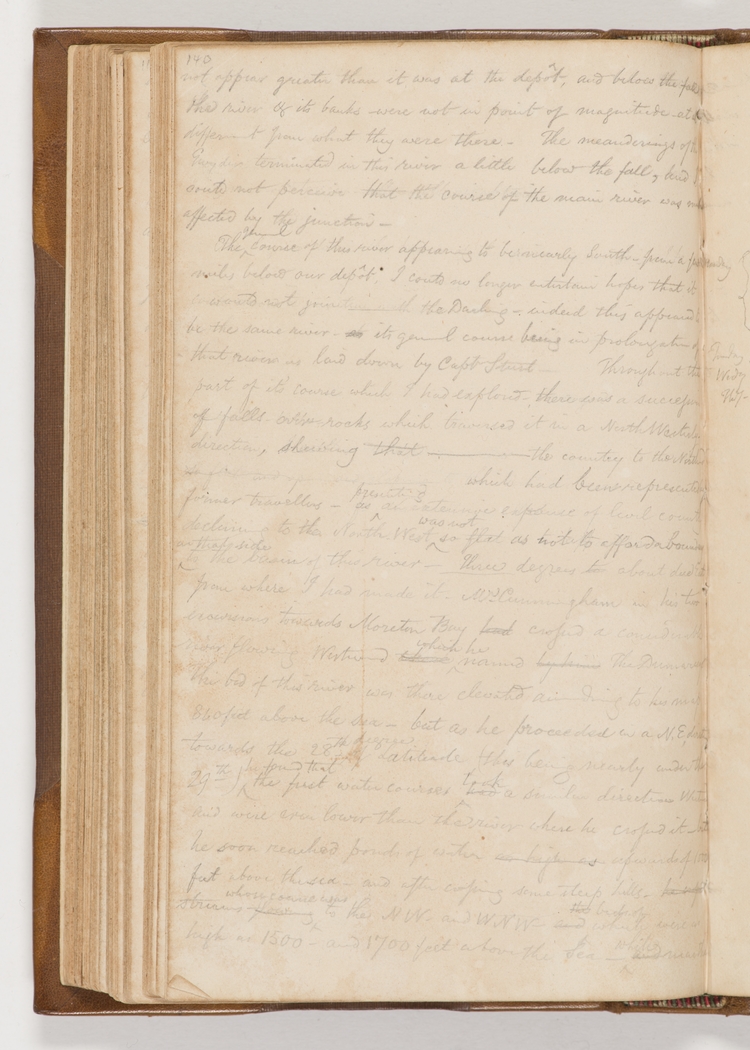 140
not appear greater than it was at the depôt, and below the fall
the river & its banks were not in point of magnitude at
different from what they were there - The meanderings of
Gwydir terminated in this river a little below the fall, and I
could not perceive that the course of the main river was
affected by the junction -
general
The course of this river appearing to be nearly South - from a few
miles below our depôt. I could no longer entertain hopes that it
would not join the Darling - indeed this appeared
be the same river - as its genl course being in prolongation of
that river as laid down by Capt Sturt - Throughout the
part of its course which I had explored there was a succession
of falls over rocks which traversed it in a North Westerly
direction, shewing that the country to the North
which had been represented
former travellers - as an extensive expanse of level
presenting
declining to the North West so flat as not to afford a boundary
was not
on that side
to the basin of this river - three degrees to about due
from where I had made it. Mr Cunningham in his two
excursions towards Moreton Bay had crossed a considerable
river flowing Westward named by him the Dumaresq
which he
The bed of this river was there elevated according to his
840 feet above the sea - but as he proceeded in a N.E.
towards the 28th degree of latitude (this being nearly under the
29th) the first water courses had a similar direction
he found that
took
and were even lower than the river where he crossed it -
he soon reached ponds of water as high as upwards of
feet above the sea - and after crossing some steep hills -
streams flowing to the N.W. and W.N.W. and
whose course was
the beds of
high as 1500 - and 1700 feet above the Sea - and
while